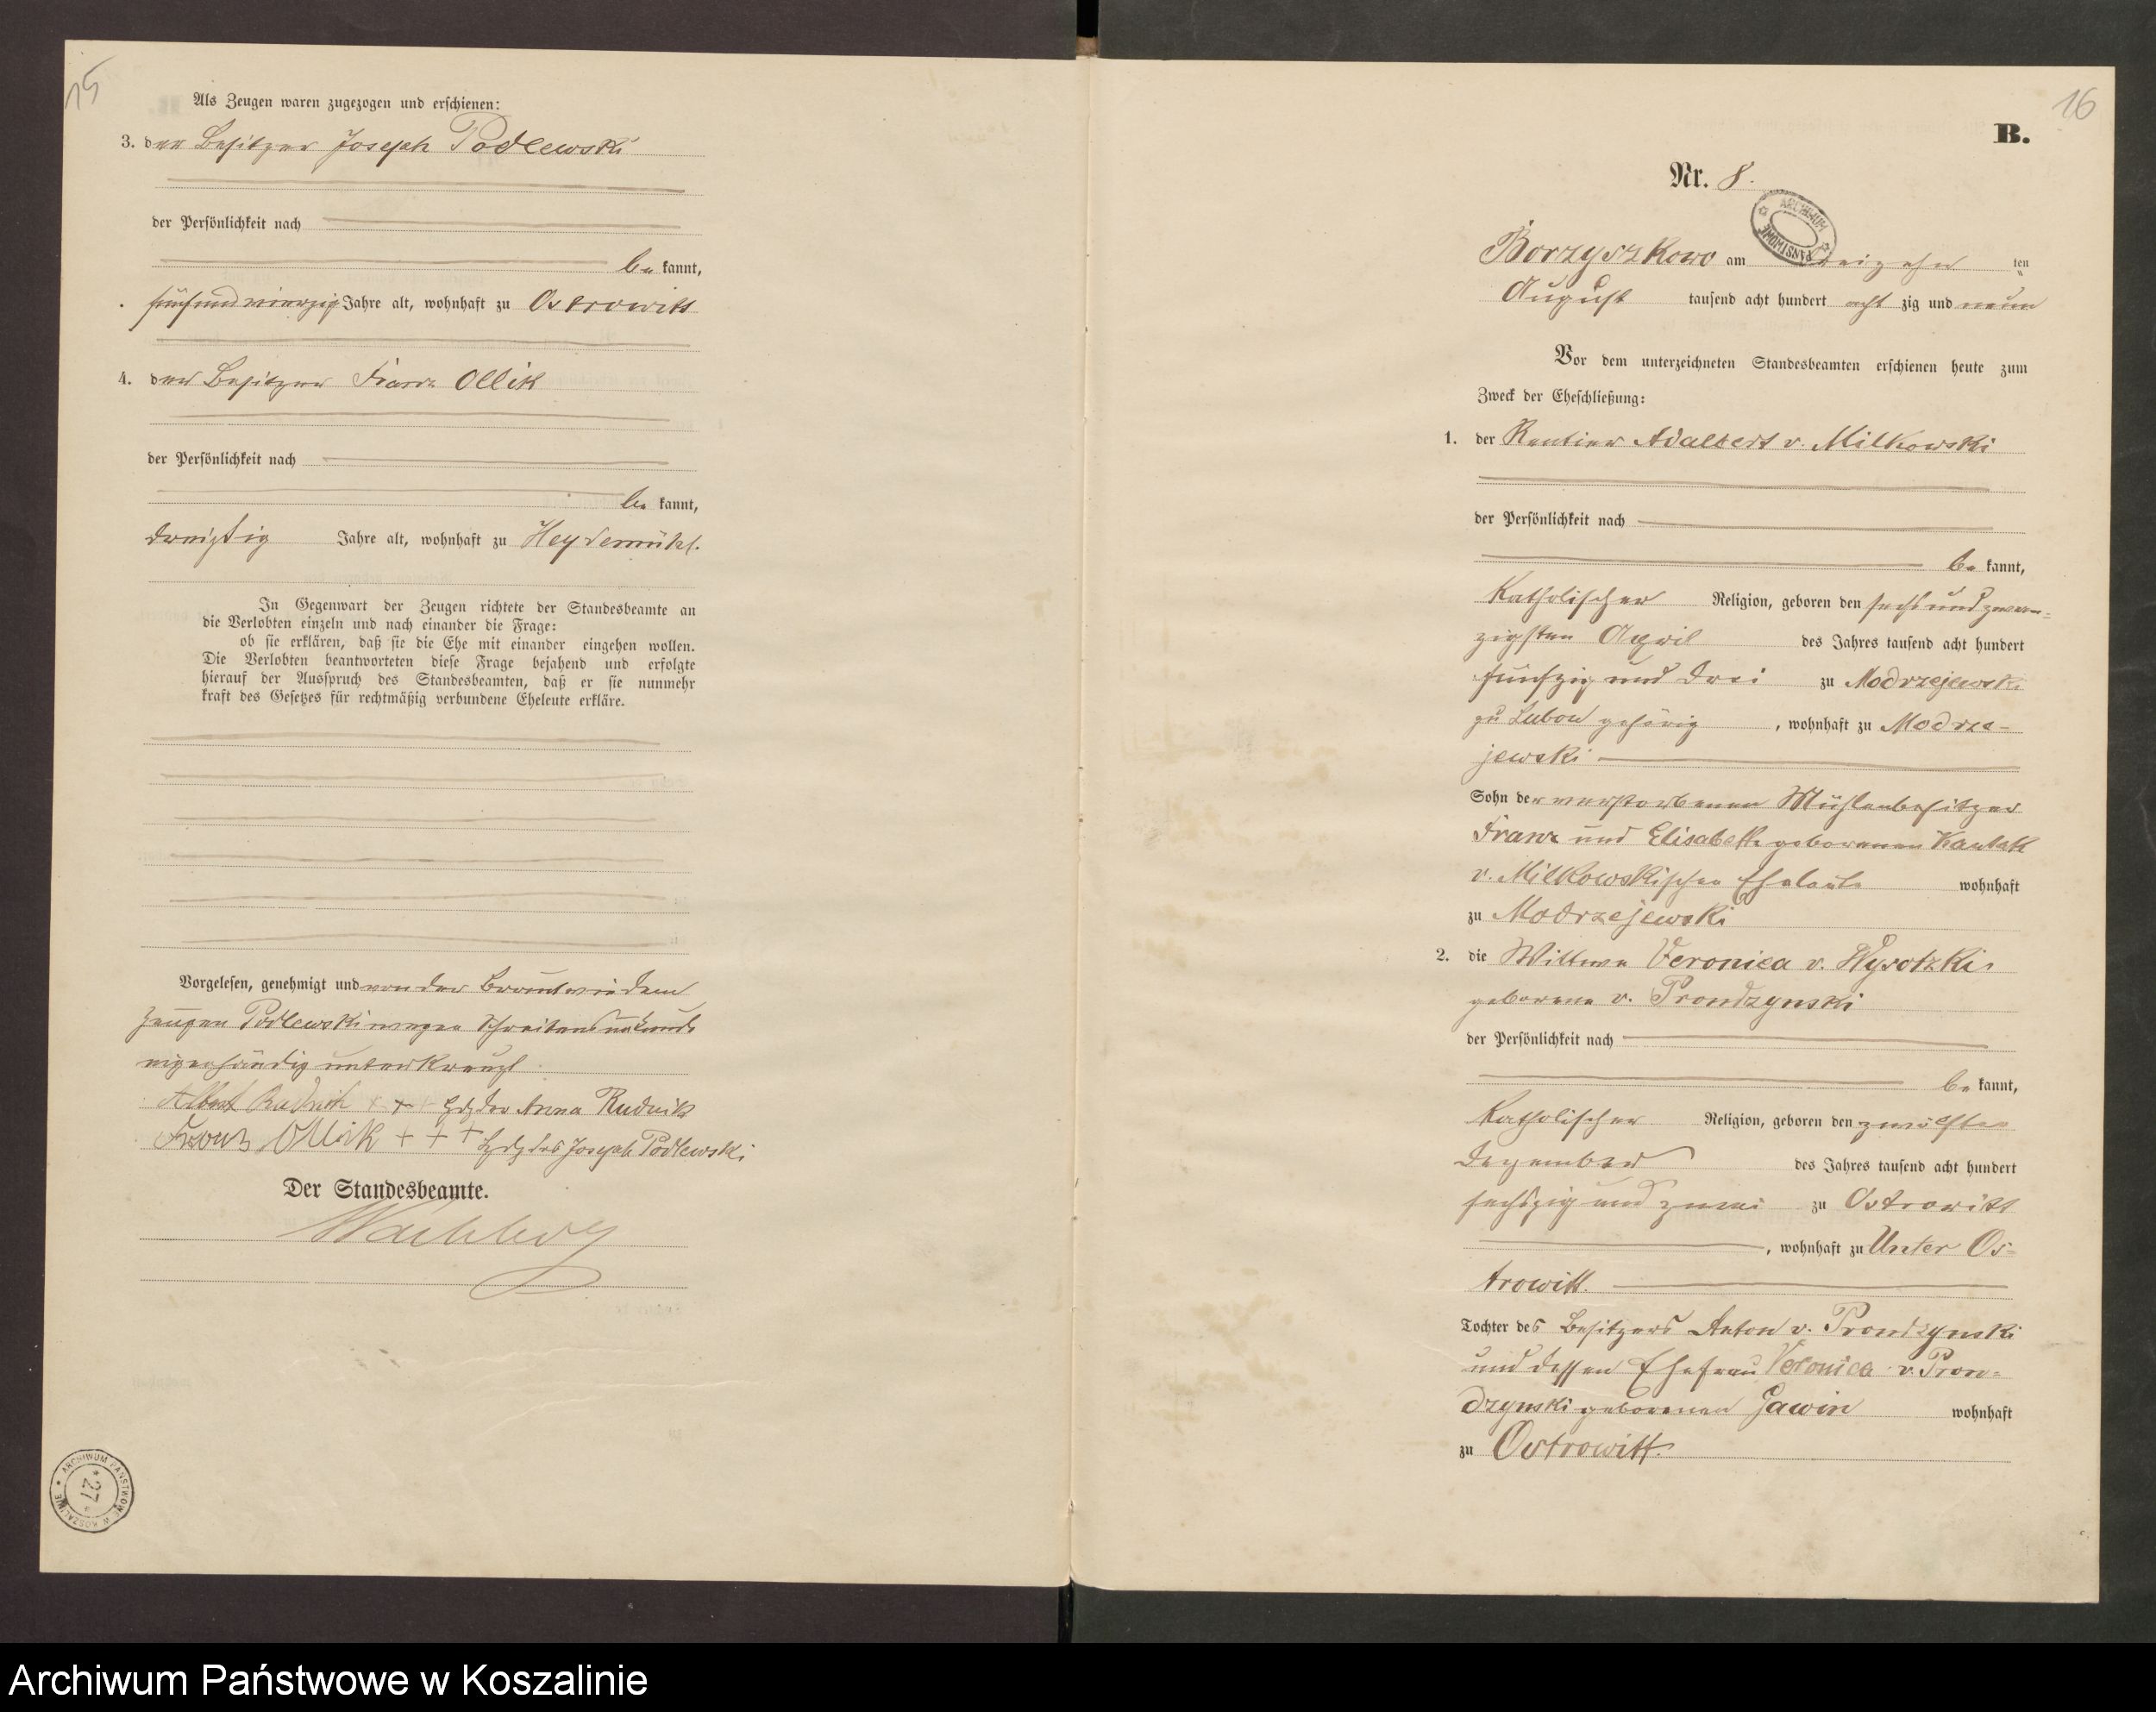 15
Als Zeugen waren zugezogen und erschienen:
3. der Besitzer Joseph Podlewski
der Persönlichkeit nach
be kannt,
fünfundvierzig Jahre alt, wohnhaft zu Ostrowitt
4. der Besitzer Franz Ollik
der Persönlichkeit nach
be kannt,
dreißig Jahre alt, wohnhaft zu Heydemühl.
In Gegenwart der Zeugen richtete der Standesbeamte an
die Verlobten einzeln und nach einander die Frage:
ob sie erklären, daß sie die Ehe mit einander eingehen wollen.
Die Verlobten beantworteten diese Frage bejahend und erfolgte
hierauf der Ausspruch des Standesbeamten, daß er sie nunmehr
kraft des Gesetzes für rechtmäßig verbundene Eheleute erkläre.
Vorgelesen, genehmigt und von der Braut wie dem
Zeugen Podlewski wegen Schreibensunkunde
eigenhändig unterkreuzt
Albert Rudnik + + + Hdz der Anna Rudnik
Franz Ollik + + + Hdz des Joseph Podlewski
Der Standesbeamte.
ARCHIWUM PAŃSTWOWE W KOSZALINIE
* 27 *
16
B.
Nr. 8.
ARCHIWUM PAŃSTWOWE
Borzyszkowo am ten
August tausend acht hundert acht zig und neun
Vor dem unterzeichneten Standesbeamten erschienen heute zum
Zweck der Eheschließung:
1. der Rentier Adalbert v. Milkowski
der Persönlichkeit nach
be kannt,
Katholischer Religion, geboren den sechs und zwan-
zigsten April des Jahres tausend acht hundert
fünfzig und drei zu Modrzejewski
zu Lubon gehörig, wohnhaft zu Modrze-
jewski
Sohn der verstorbenen Mühlenbesitzer
Franz und Elisabeth geborenen Kantak
v. Milkowskischen Eheleute wohnhaft
zu Modrzejewski
2. die Wittwe Veronica v. Wysotzki,
geborene v. Prondzynski
der Persönlichkeit nach
be kannt,
Katholischer Religion, geboren den zwölften
Dezember des Jahres tausend acht hundert
sechszig und zwei zu Ostrowitt
, wohnhaft zu Unter Os-
trowitt.
Tochter des Besitzers Anton v. Prondzynski
und dessen Ehefrau Veronica v. Pron-
dzynski geborenen Gawin wohnhaft
zu Ostrowitt.
Archiwum Państwowe w Koszalinie